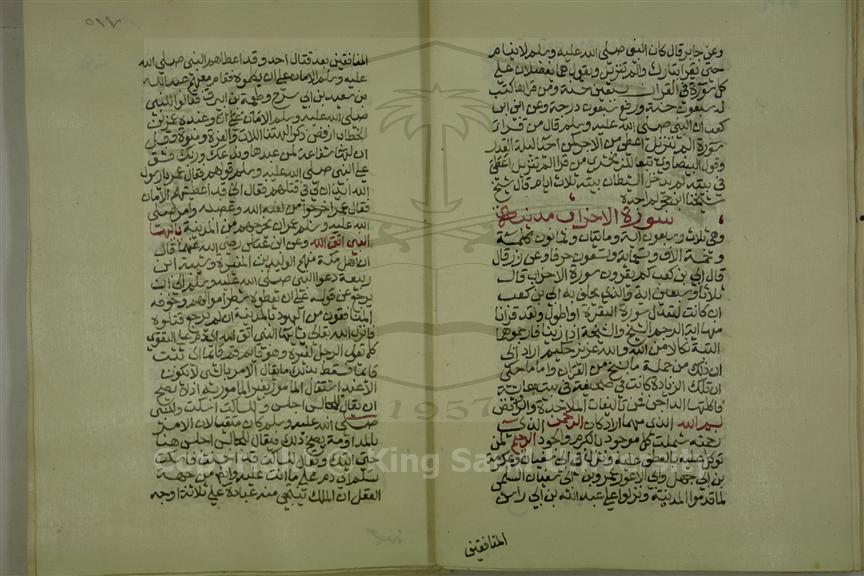 وعن جابر قال كان النبي صلى الله عليه وسلم لا ينام
حتى يقرأ تبارك والم تنزيل ويقول هما يفضلان على
كل سورة في القرآن بسبعين حسنة ومن قرأها كتب
له سبعون حسنة ورفع سبعون درجة وعن ابي ابن
كعب ان النبي صلى الله عليه وسلم قال من قرأ
سورة الم تنزيل اعطي من الاجر كمن احيا ليلة القدر
وقول البيضاوي تبعا للزمخشري من قرأ الم تنزيل
في بيته لم يدخل الشيطان بيته ثلاث ايام قال شيخ
شيخنا ابن حجر لم اجده
سورة الاحزاب مدنية
وهي ثلاث وسبعون آية ومائتان وثمانون كلمة
وخمسة آلاف وسبعمائة وتسعون حرفا وعن زر قال
قال ابي بن كعب كم تقرون سورة الاحزاب قال
ثلاثا وسبعين آية قال والذي يحلف به ابي بن كعب
ان كانت لتعدل سورة البقرة او اطول ولقد قرأنا
منها آية الرجم الشيخ والشيخة اذا زنيا فارجموهما
البتة نكالا من الله والله عزيز حكيم اراد ابي
ان ذلك من جملة ما نسخ من القرآن واما ما حكي
ان تلك الزيادة كانت في صحيفة في بيت عائشة
فاكلتها الداجن فمن تاليفات الملاحدة والروافض
بسم الله الذي مهما اراد كان الرحمن الذي
رحمته شملت كل موجود بالكرم والجود الرحيم لمن
توكل عليه بالعطف عليه ونزل في ابي سفيان وعكرمة
بن ابي جهل وابي الاعور عمرو بن ابي سفيان السلمي
لما قدموا المدينة ونزلوا على عبد الله بن ابي راس
المنافقين
المنافقين بعد قتال احد وقد اعطاهم النبي صلى الله
عليه وسلم الامان على ان يكلموه فقام معهم عبد الله
بن سعد بن ابي سرح وطعمة بن ابيرق فقالوا للنبي
صلى الله عليه وسلم وعنده عمر بن
الخطاب ارفض ذكر آلهتنا اللات والعزى ومنوة وقل
ان لها شفاعة لمن عبدها وندعك وربك فشق
على النبي صلى الله عليه وسلم قولهم فقال عمر يا رسول
الله ائذن لي في قتلهم فقال اني قد اعطيتهم الامان
فقال عمر اخرجوا في لعنة الله وغضبه وامر صلى
الله عليه وسلم عمر ان يخرجهم من المدينة يا ايها
النبي اتق الله وعن ابن عباس رضي الله عنهما قال
ان اهل مكة منهم الوليد بن المغيرة وشيبة ابن
ربيعة دعوا النبي صلى الله عليه وسلم الى ان
يرجع عن قوله على ان يعطوه شطر اموالهم وخوفه
المنافقون من اليهود بالمدينة ان لم يرجع قتلوه
فانزل الله تعالى يا ايها النبي اتق الله اي دم على التقوى
كما تقول الرجل لغيره وهو قائم قم قائما اي تثبت
قائما فسقط بذلك ما يقال الامر بالشيء لا يكون
الا عند اشتغال المامور بغير المامور به اذ لا يصح
ان يقال للجالس اجلس وللساكت اسكت والنبي
صلى الله عليه وسلم كان متقيا لان الامر
بالمداومة يصح في ذلك فيقال للجالس اجلس هنا
حتى اتيك ويقال للساكت قد احسنت فاسكت
تسلم اي دم على ما انت عليه وايضا من جهة
العقل ان الملك يتقي منه عباده على ثلاثة اوجه